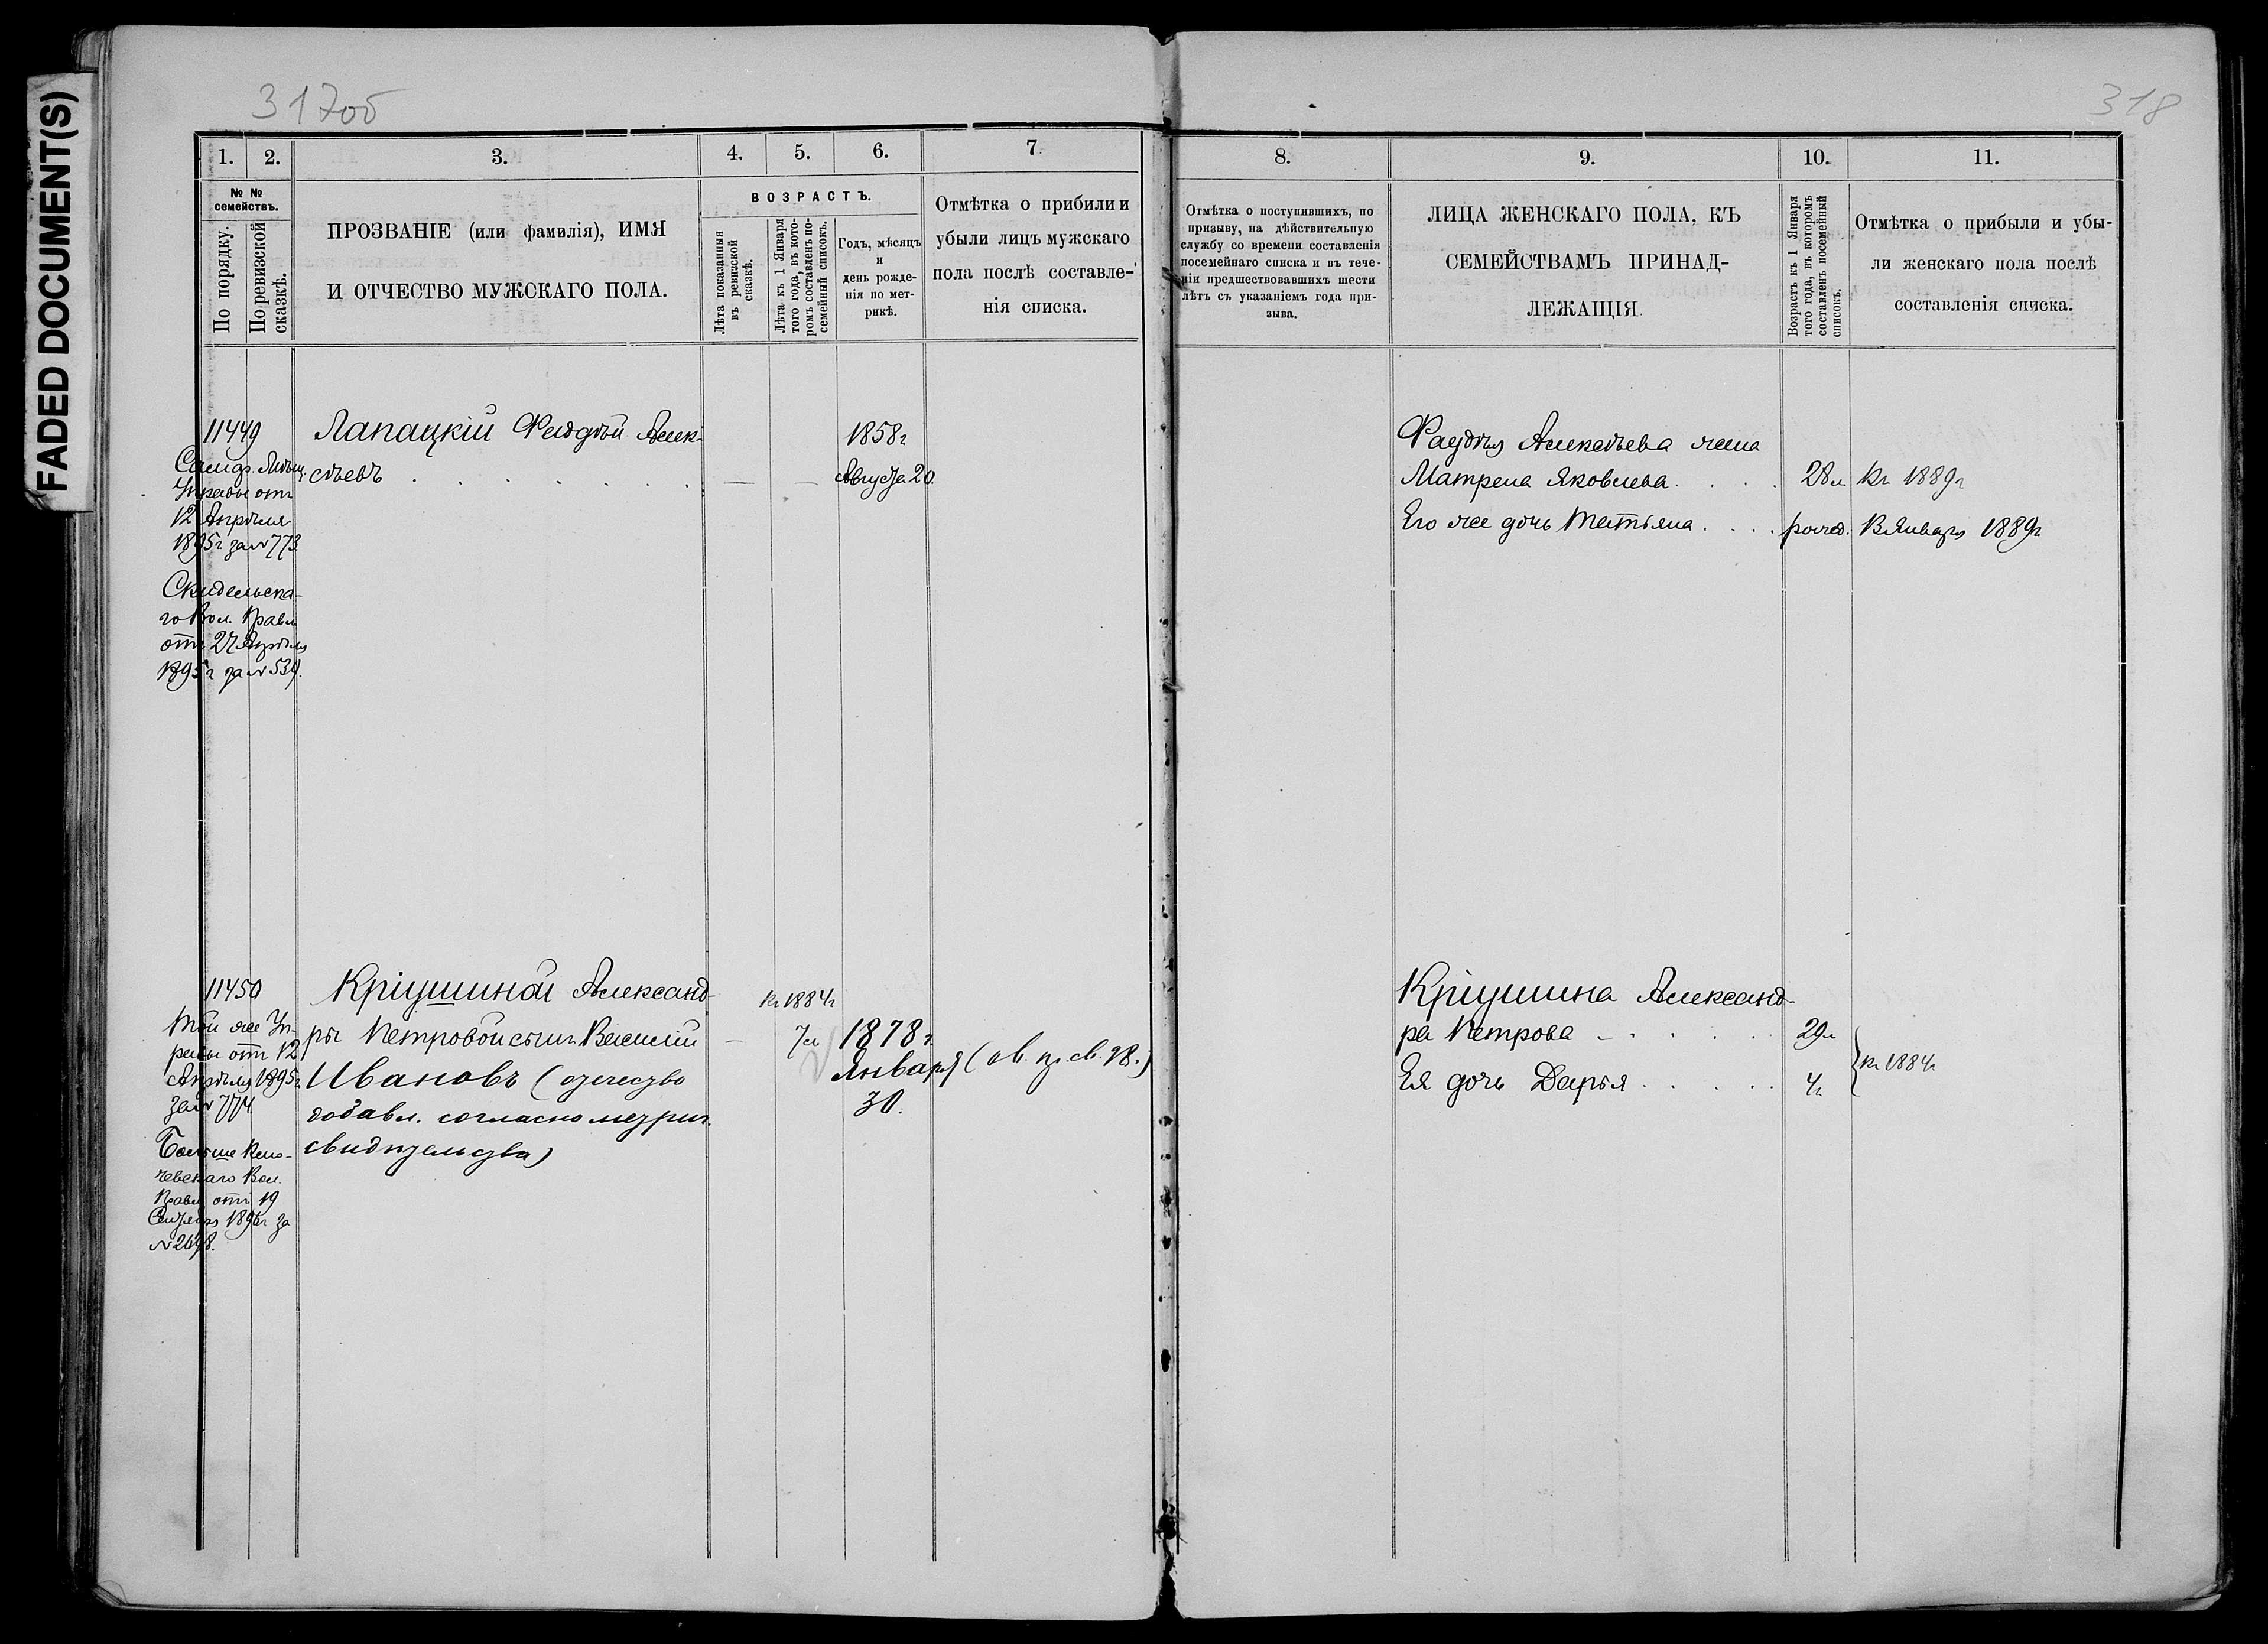 FADED DOCUMENT(S)
317об
318
1. 2. 3. 4. 5. 6. 7
№ №
семействъ.
По порядку.
По ревизской
сказкѣ.
ПРОЗВАНІЕ (или фамилія), ИМЯ
И ОТЧЕСТВО МУЖСКАГО ПОЛА.
ВОЗРАСТЪ.
Лѣта показанныя
въ ревизской
сказкѣ.
Лѣта къ 1 Января
того года, въ кото-
ромъ составленъ по-
семейный списокъ.
Годъ, мѣсяцъ
и
день рожде-
нія по мет-
рикѣ.
Отмѣтка о прибыли и
убыли лицъ мужскаго
пола послѣ составле-
нія списка.
11449
Самар. Мѣщ.
Управы отъ
12 Апрѣля
1895г за № 773
Скидельска-
го Вол. Правл
отъ 27 Апрѣля
1895г за № 539.
Лапацкій Фаддѣй Алек-
сѣевъ
1858г
Августа 20
11450
Той же Уп-
равы отъ 12
Апрѣля 1895г.
за № 774.
Вол.
Правл отъ 19
1896г за
№ 2698.
Кріушиной Александ-
ры Петровой сынъ Василій
Ивановъ (отечество
добавл. согласно метрич.
свидѣтельства)
Къ 1884г
7л
1878г.
Января
30.
8. 9. 10. 11.
Отмѣтка о поступившихъ, по
призыву, на дѣйствительную
службу со времени составленія
посемейнаго списка и въ тече-
ніи предшествовавшихъ шести
лѣтъ съ указаніемъ года при-
зыва.
ЛИЦА ЖЕНСКАГО ПОЛА, КЪ
СЕМЕЙСТВАМЪ ПРИНАД-
ЛЕЖАЩІЯ.
Возрастъ къ 1 Января
того года, въ которомъ
составленъ посемейный
списокъ.
Отмѣтка о прибыли и убы-
ли женскаго пола послѣ
составленія списка.
Фаддѣя Алексѣева жена
Матрена Яковлева 28л Къ 1889г
Его же дочь Татьяна рожд. В Январѣ 1889г
Кріушина Александ-
ра Петрова 29л
Ея дочь Дарья 4г
Къ 1884г